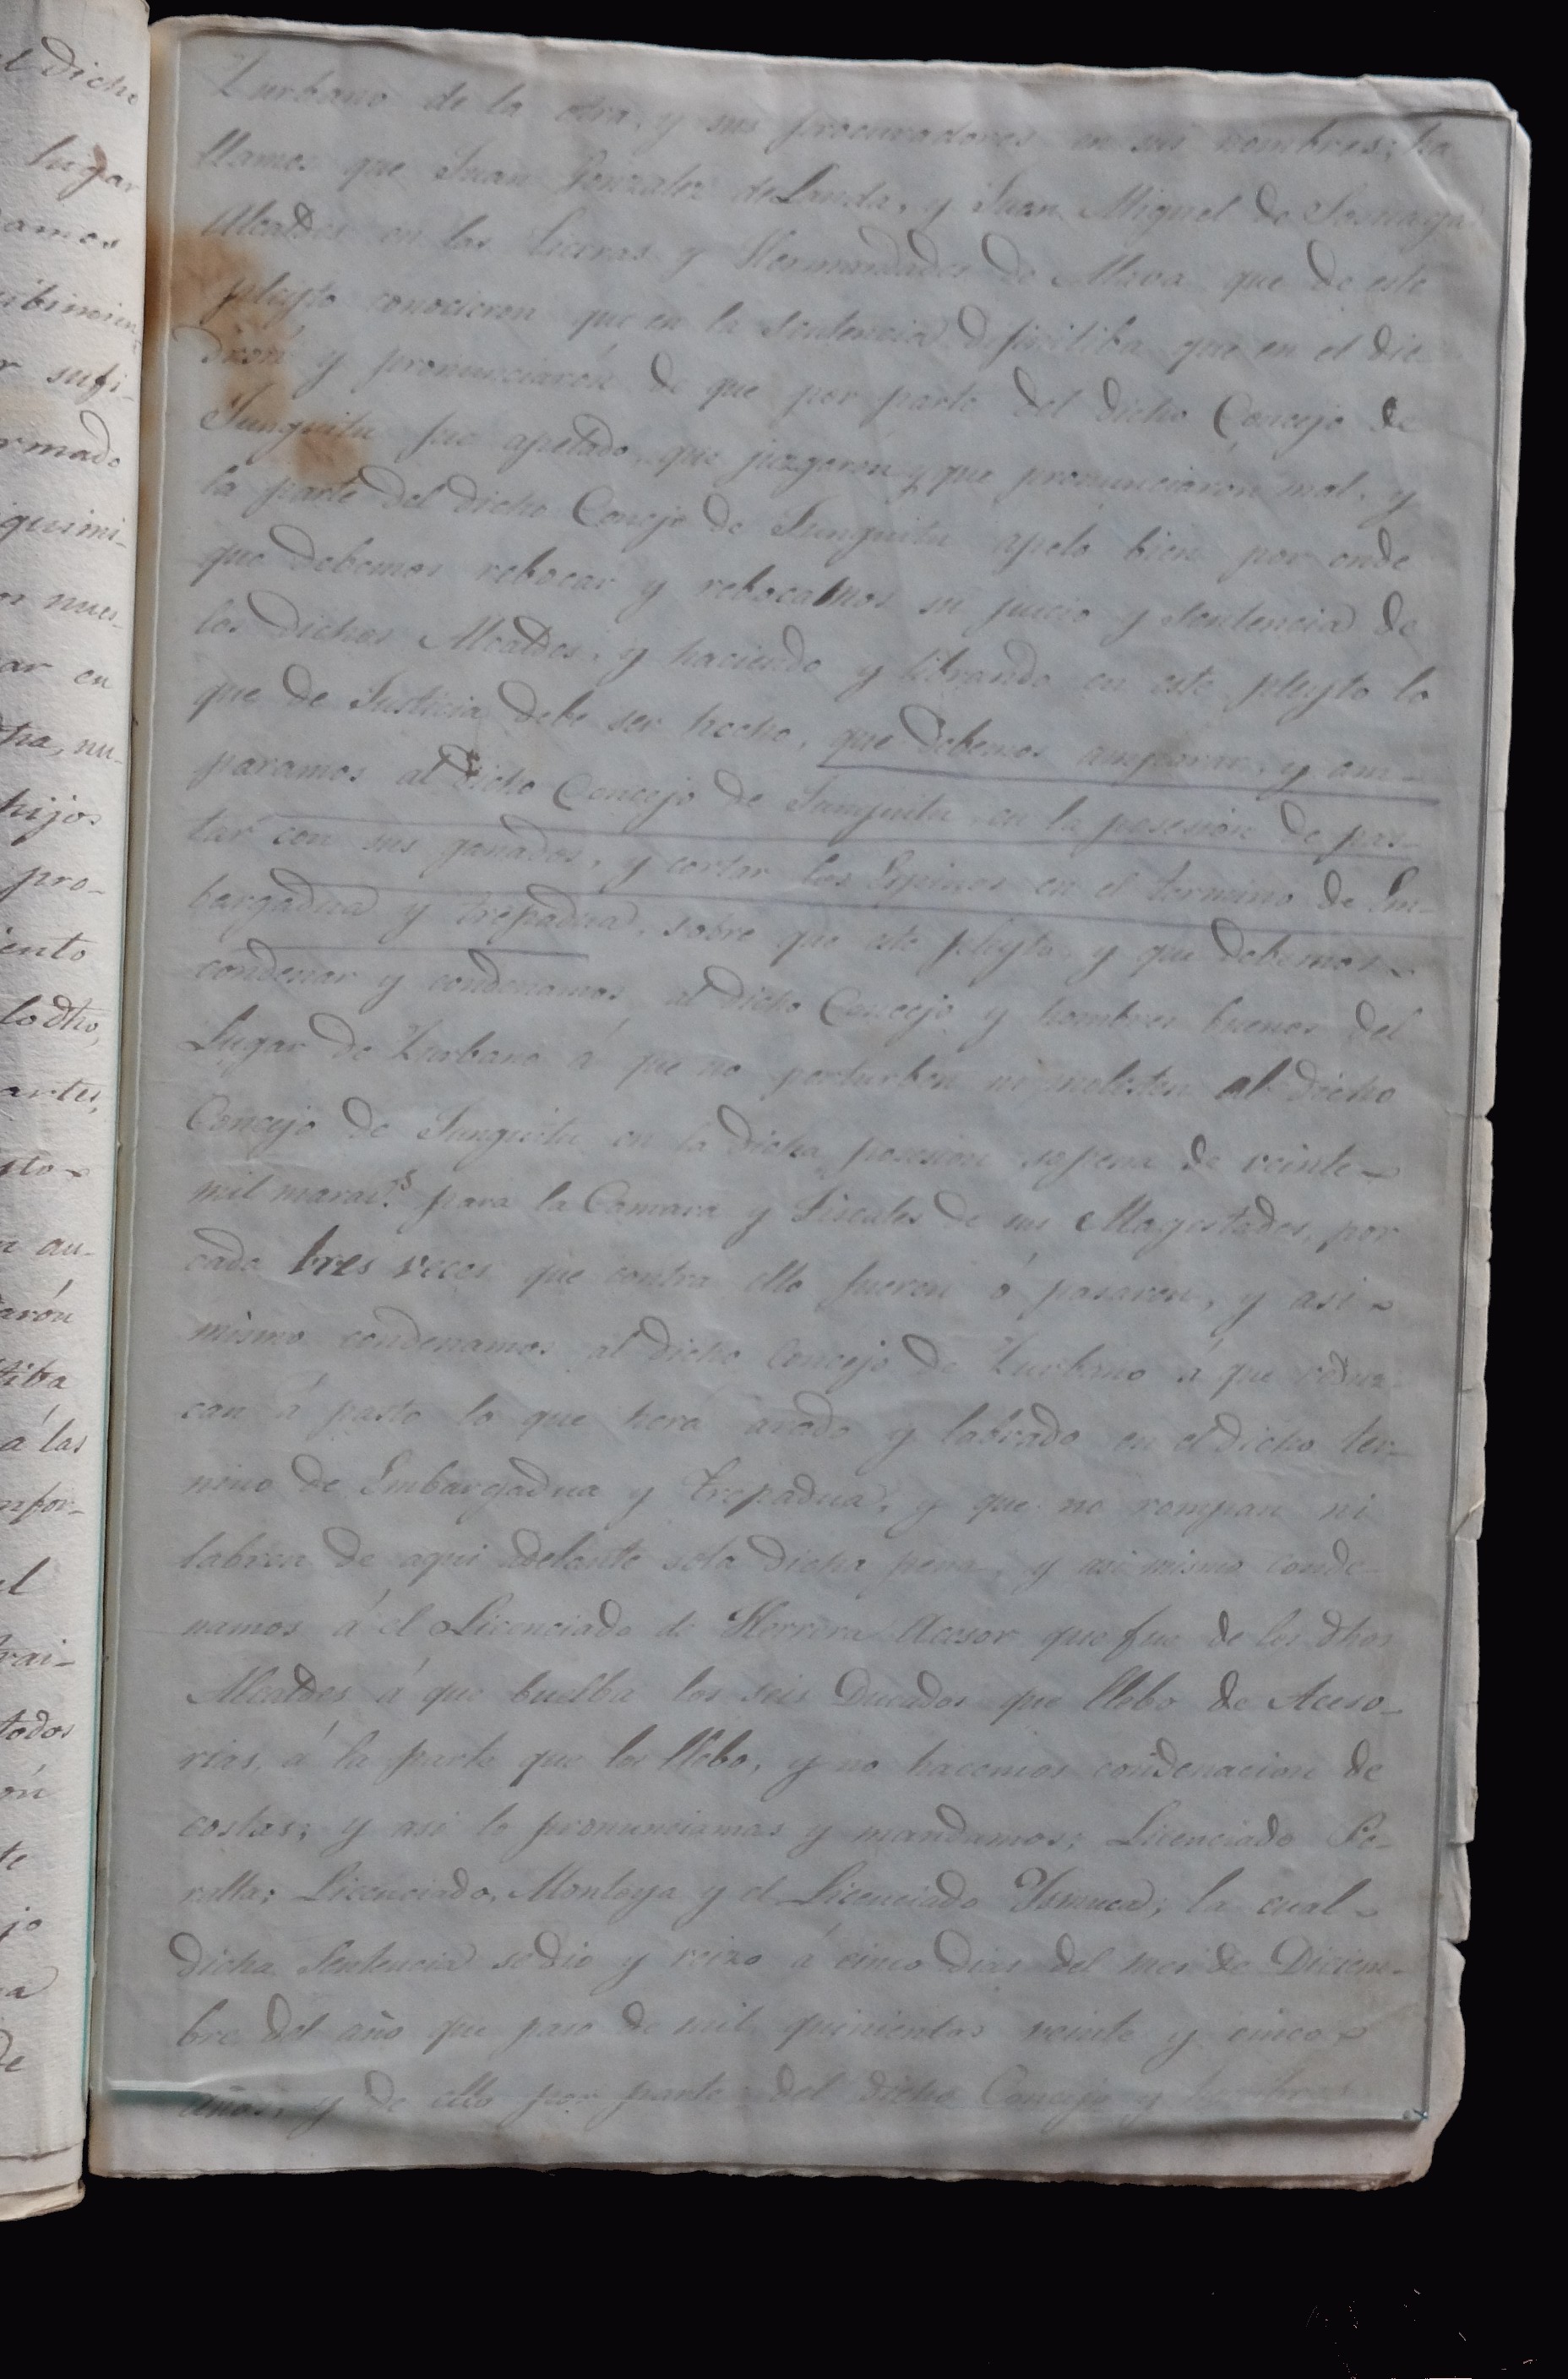 l dicho
lugar
amos
ibimien
r sufi-
rmado
quimi-
or nues-
ar en
ha, nu-
hijos
pro-
iento
lo dho,
artes,
sto
n au-
arón
tiba
á las
nfor-
el
rai-
todos
ón
te
jo
a
de
Zurbano de la otra, y sus procuradores en sus nombres; ha
llamos que Juan Gonzalez de Landa, y Juan Miguel de
Alcaldes en las tierras y Hermandades de Alava que de este
pleyto conocieron que en la sentencia difinitiba que en el die
ron y pronunciarón de que por parte del dicho Concejo de
Junguitu fue apelado, que juzgarón y que pronunciaron mal, y
la parte del dicho Concejo de Junguitu apelo bien por ende
que debemos rebocar y rebocamos su juicio y sentencia de
los dichos Alcaldes, y haciendo y librando en este pleyto lo
que de Justicia debe ser hecho, que debemos amparar, y am-
paramos al dicho Concejo de Junguitu en la posesión de pas-
tar con sus ganados, y cortar los Espinos en el termino de Em-
bargadua y trepadua, sobre que este pleyto, y que debemos
condenar y condenamos al dicho Concejo y hombres buenos del
Lugar de Zurbano á que no perturben ni molesten al dicho
Concejo de Junguitu en la dicha posesión sopena de veinte
mil maravs. para la Camara y Fiscales de sus Magestades, por
cada tres veces que contra ello fueren ó pasaren, y asi
mismo condenamos al dicho Concejo de Zurbano á que reduz-
can á pasto lo que herá arado y labrado en el dicho ter-
mino de Embargadua y trepadua, y que no rompan ni
labren de aqui adelante sola dicha pena, y asi mismo conde-
namos á el Licenciado de Herrera Acesor que fue de los dhos
Alcaldes á que buelba los seis Ducados que llebo de Aceso-
rias, á la parte que los llebo, y no hacemos condenacion de
costas; y asi lo pronunciamos y mandamos; Licenciado Pe-
ralta; Licenciado, Montoya y el Licenciado la cual
dicha Sentencia se dio y rezo á cinco dias del mes de Diciem-
bre del año que paso de mil quinientos veinte y cinco
años, y de ello por parte del dicho Concejo y hombres